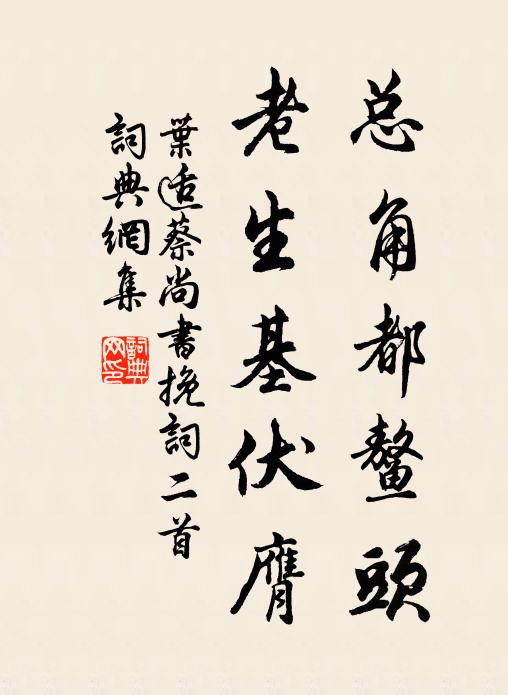 总角都鳌頭
老生基伏膺
葉适蔡尚書挽詞二首
詞典網集
詞典網印